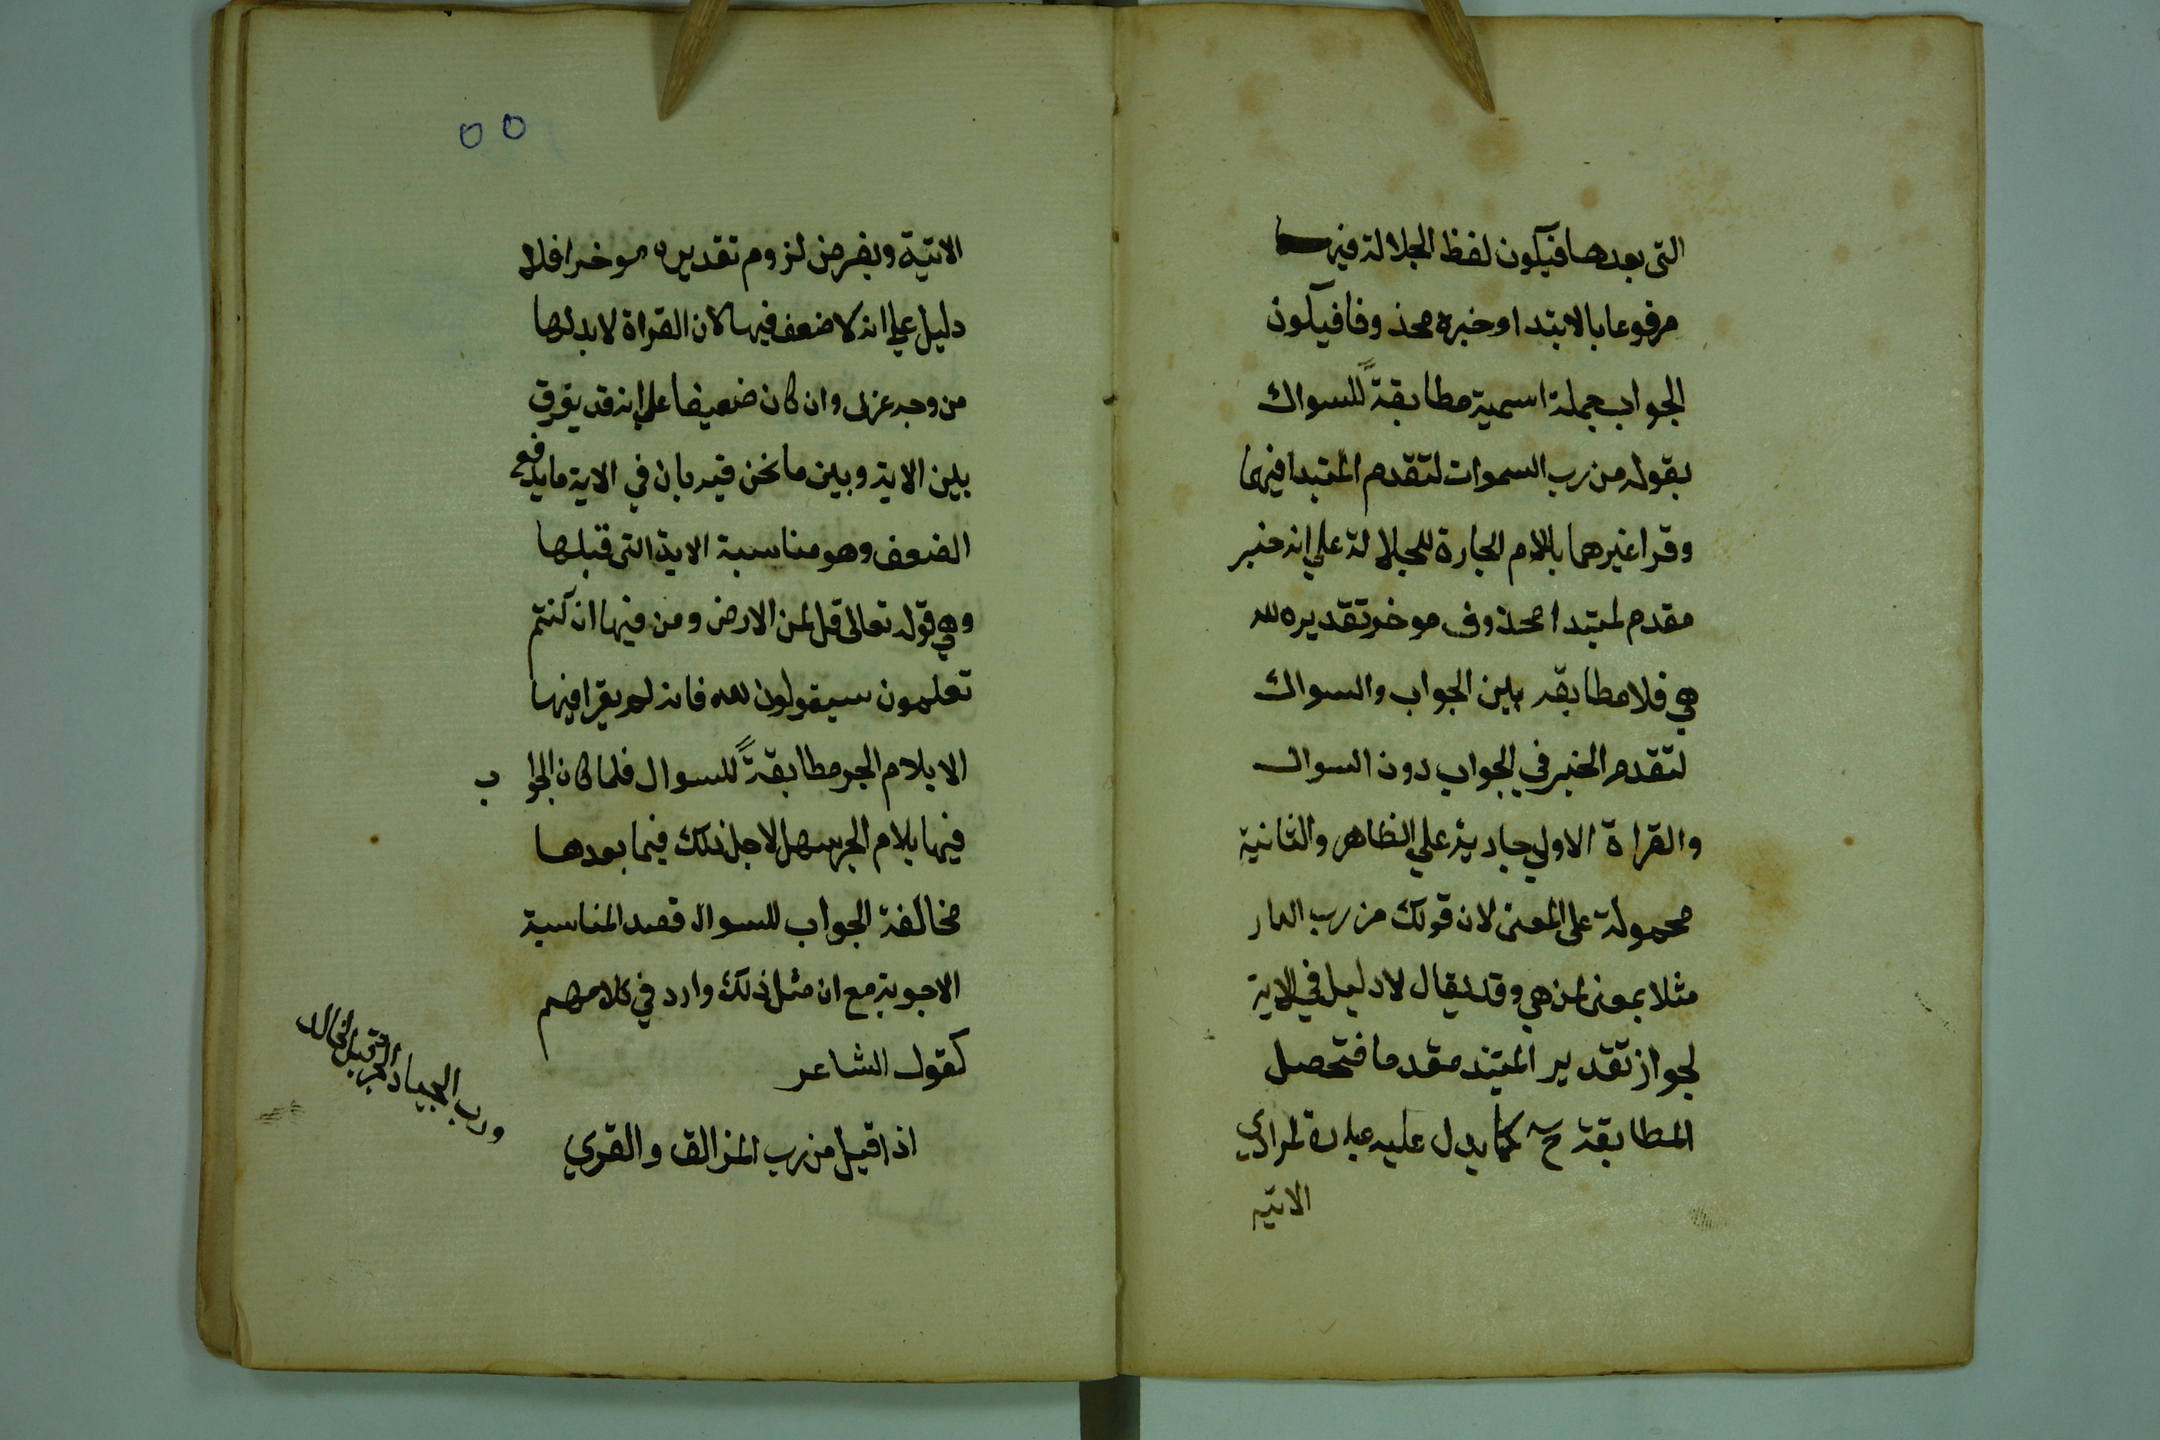 التى بعدها فيكون لفظ الجلالة فيهما
مرفوعا بالابتدا وخبره محذوفا فيكون
الجواب جملة اسمية مطابقةً للسوال
بقوله من رب السموات لتقدم المبتدا فيهما
وقرا غيرهما باللام الجارة للجلالة على انه خبر
مقدم لمبتدا محذوف موخر تقديره لله
هي فلا مطابقه بين الجواب والسوال
لتقدم الخبر في الجواب دون السوال
والقراة الاولى جارية على الظاهر والثانية
محمولة على المعنى لان قولك من رب الدار
مثلا بمعنى لمن هي وقد يقال لا دليل في الاية
لجواز تقدير المبتدا مقدما فتحصل
المطابقة ح كما يدل عليه عبارة المرادي
الاتية
٥٥
الاتية وبفرض لزوم تقديره موخرا فلا
دليل على انه لا ضعف فيها لان القراة لابد لها
من وجه عربى وان كان ضعيفا على انه قد يفرق
بين الاية وبين ما نحن فيه بان في الاية ما يدفع
الضعف وهو مناسبة الاية التى قبلها
وهي قوله تعالى قل لمن الارض ومن فيها ان كنتم
تعلمون سيقولون لله فانه لم يقرا فيها
الا بلام الجر مطابقةً للسوال فلما كان الجواب
فيها بلام الجر سهل لاجل ذلك فيما بعدها
مخالفة الجواب للسوال قصد المناسبة
الاجوبة مع ان مثل ذلك وارد في كلامهم
كقول الشاعر
اذا قيل من رب المزالف والقري
ورب الجياد الجرد قيل لخالد